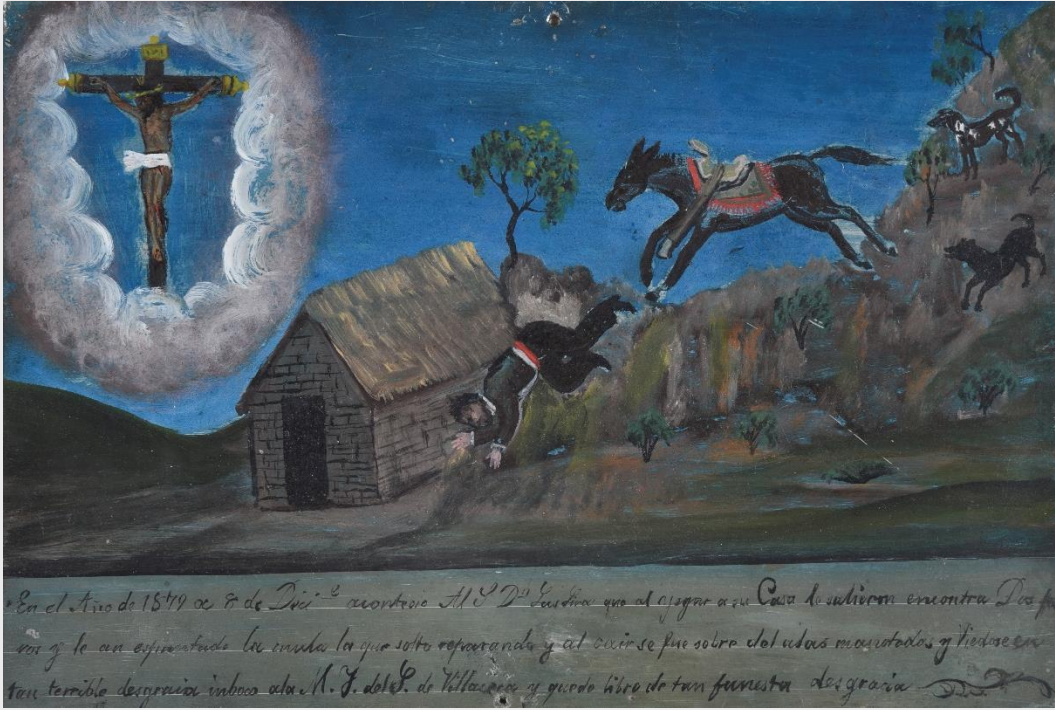 En el Año de 1879 a 8 de Dici e acontecio Al S Dn que al apgar a su Casa le salieron encontra Dos
ros y le an espantado la mula la que solto reparando y al cair se fue sobre del a das manotadas y viedose en
tan terrible desgracia inboco ala M. Y. del S. de Villaseca y quedo libre de tan funesta desgracia